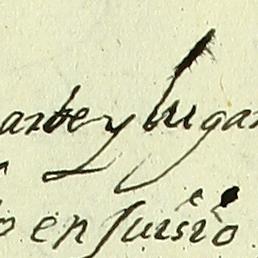 arte y lugar
en juisio